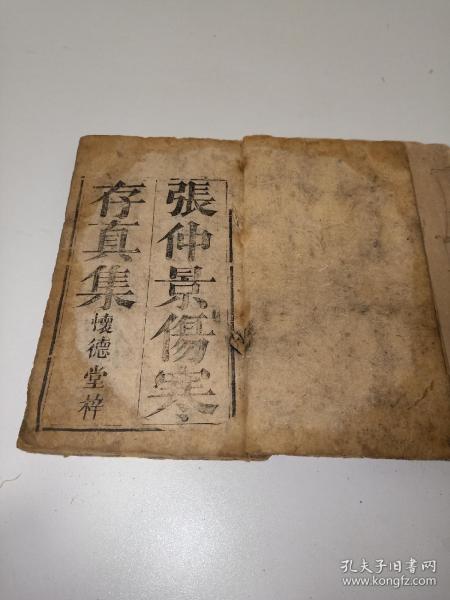 張仲景傷寒
存真集
懷德堂梓
孔夫子旧书网
www.kongfz.com